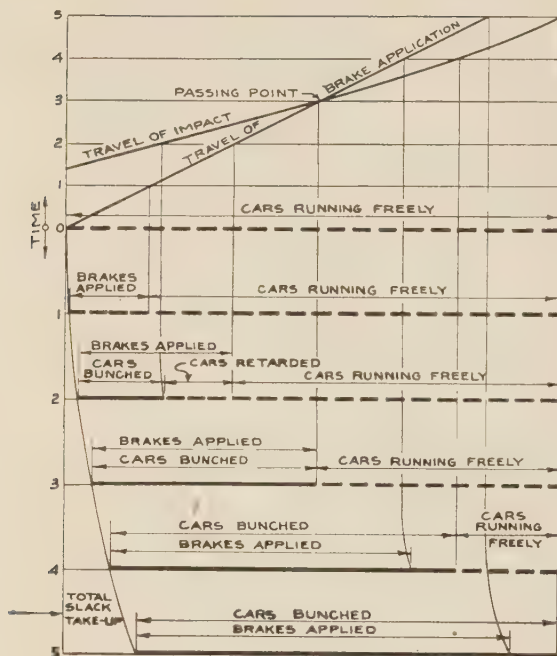 5
4
PASSING POINT
BRAKE APPLICATION
3
TRAVEL OF IMPACT
TRAVEL OF
2
1
CARS RUNNING FREELY
TIME
0
BRAKES
APPLIED
CARS RUNNING FREELY
1
BRAKES APPLIED
CARS
BUNCHED
CARS RETARDED
CARS RUNNING FREELY
2
BRAKES APPLIED
CARS BUNCHED
CARS RUNNING FREELY
3
CARS BUNCHED
BRAKES APPLIED
CARS
RUNNING
FREELY
4
TOTAL
SLACK
TAKE-UP
CARS BUNCHED
BRAKES APPLIED
5